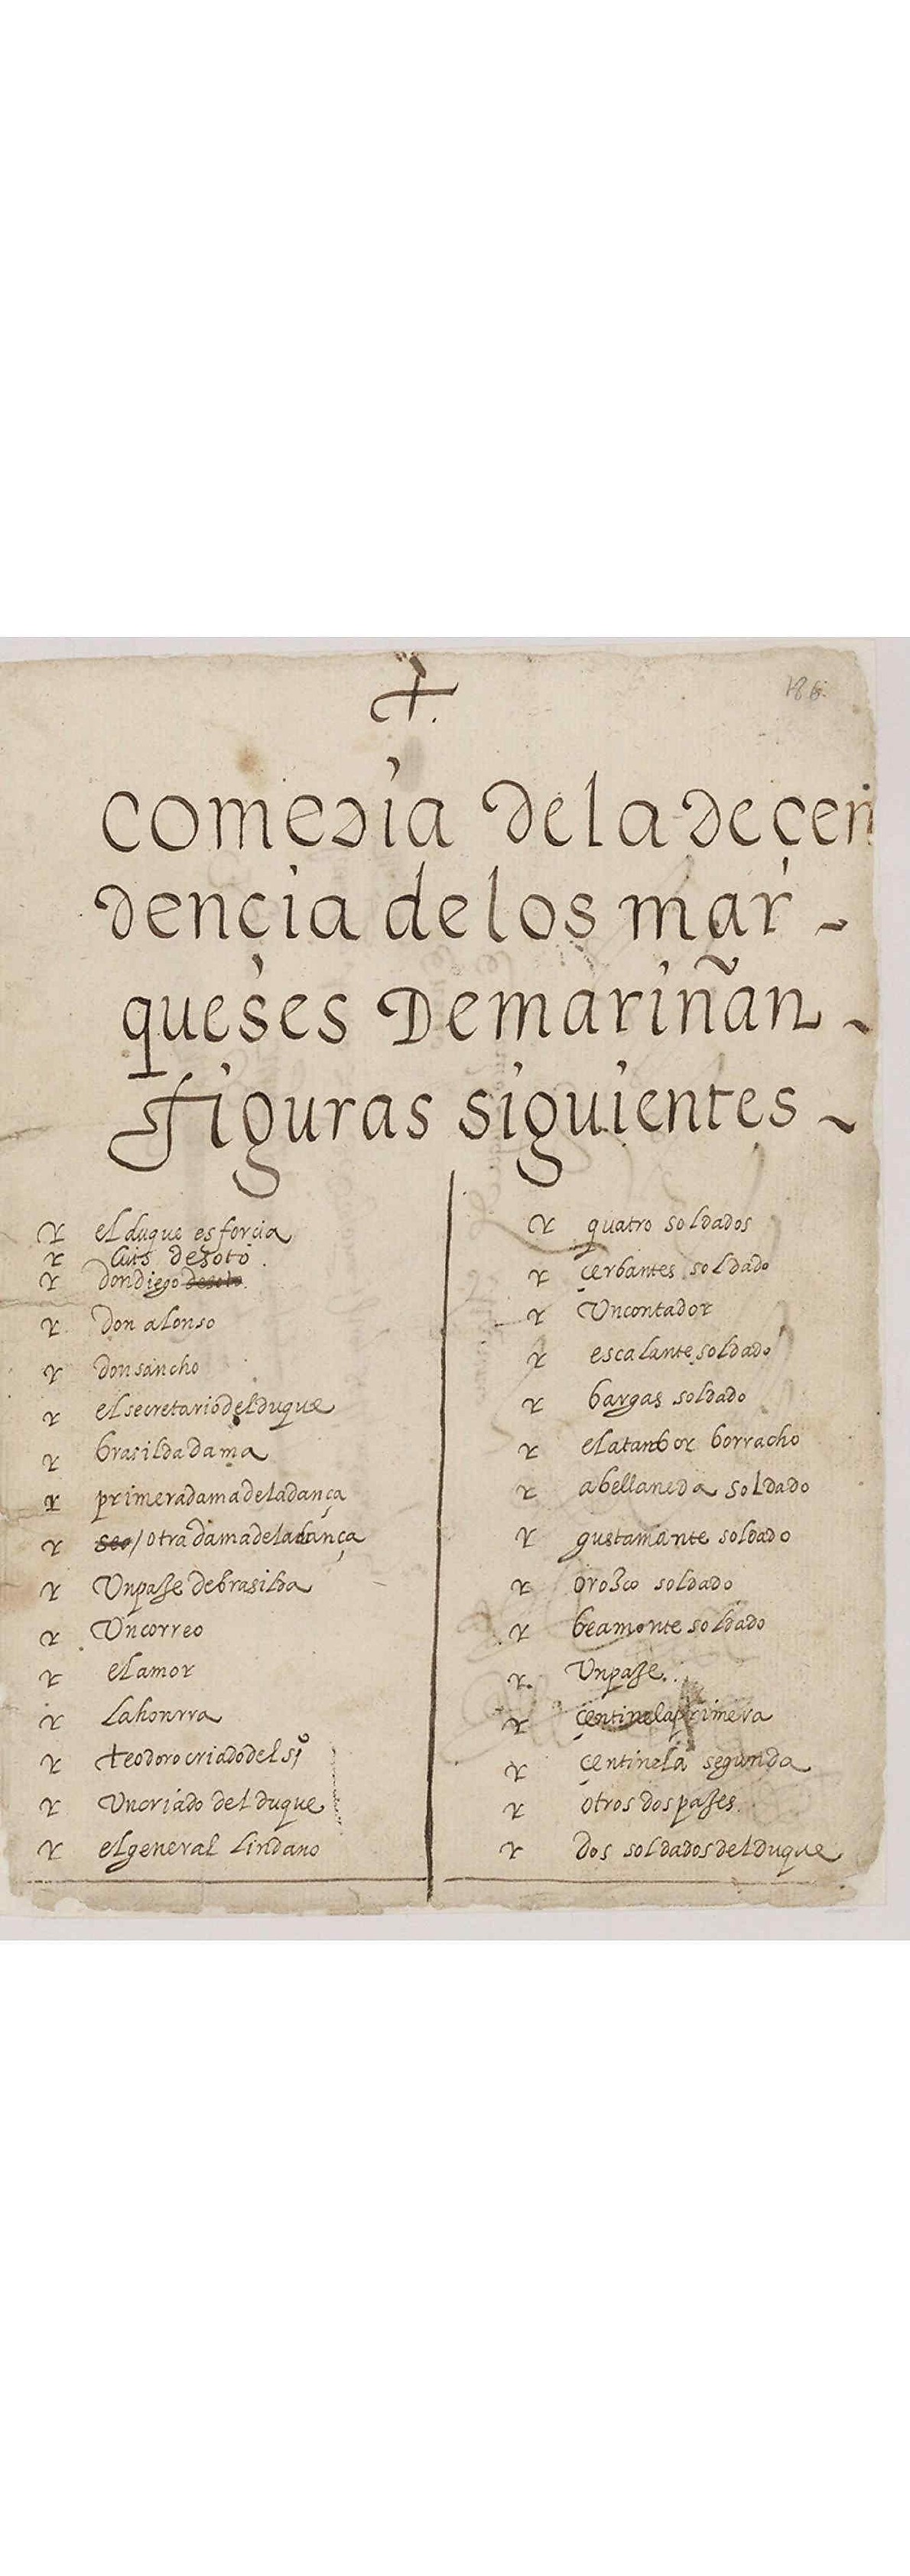 186
comedia dela decen
dençia delos mar -
queses Demariñan -
figuras siguientes -
el duque esforçia
luis desoto
dondiego desoto
don alonso
don sancho
el secretario del duque
brasilda dama
primera dama dela dança
seg / otra dama dela dança
Un paje de brasilda
Un correo
el amor
la honrra
teodoro criado del sr
Un criado del duque
el general lindano
quatro soldados
çerbantes soldado
Un contador
escalante soldado
bargas soldado
el atanbor borracho
abellaneda soldado
gustamante soldado
orozco soldado
beamonte soldado
Un paje
çentinela primera
çentinela segunda
otros dos pajes
dos soldados del duque